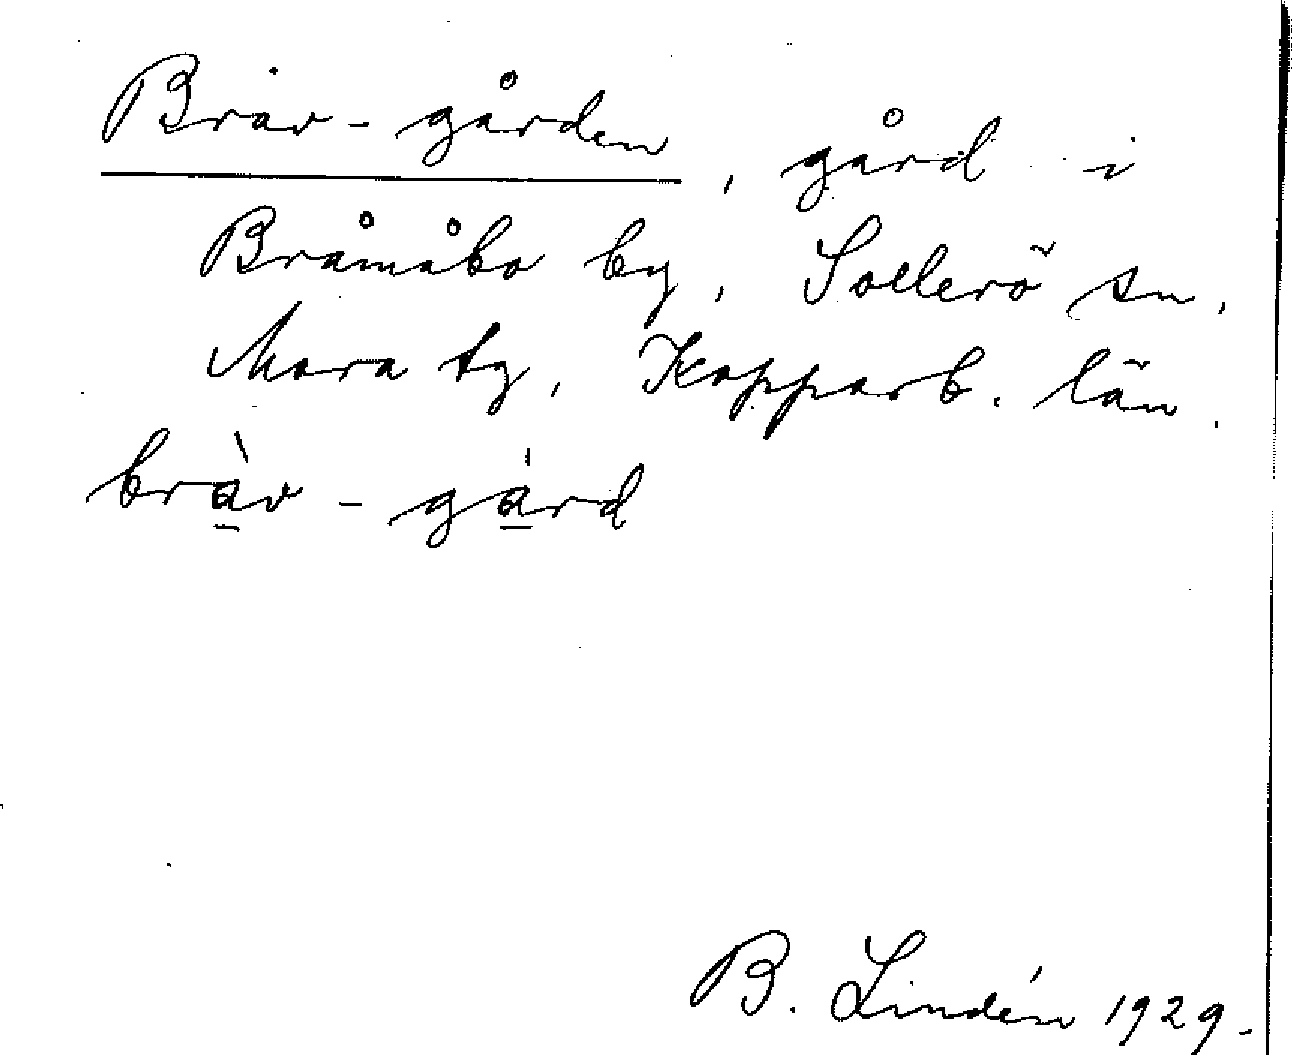 Brav-gården, gård i
Bråmåbo by, Sollerö sn,
Mora tg, Kopparb. län.
bràv - gård
B. Lindén 1929.